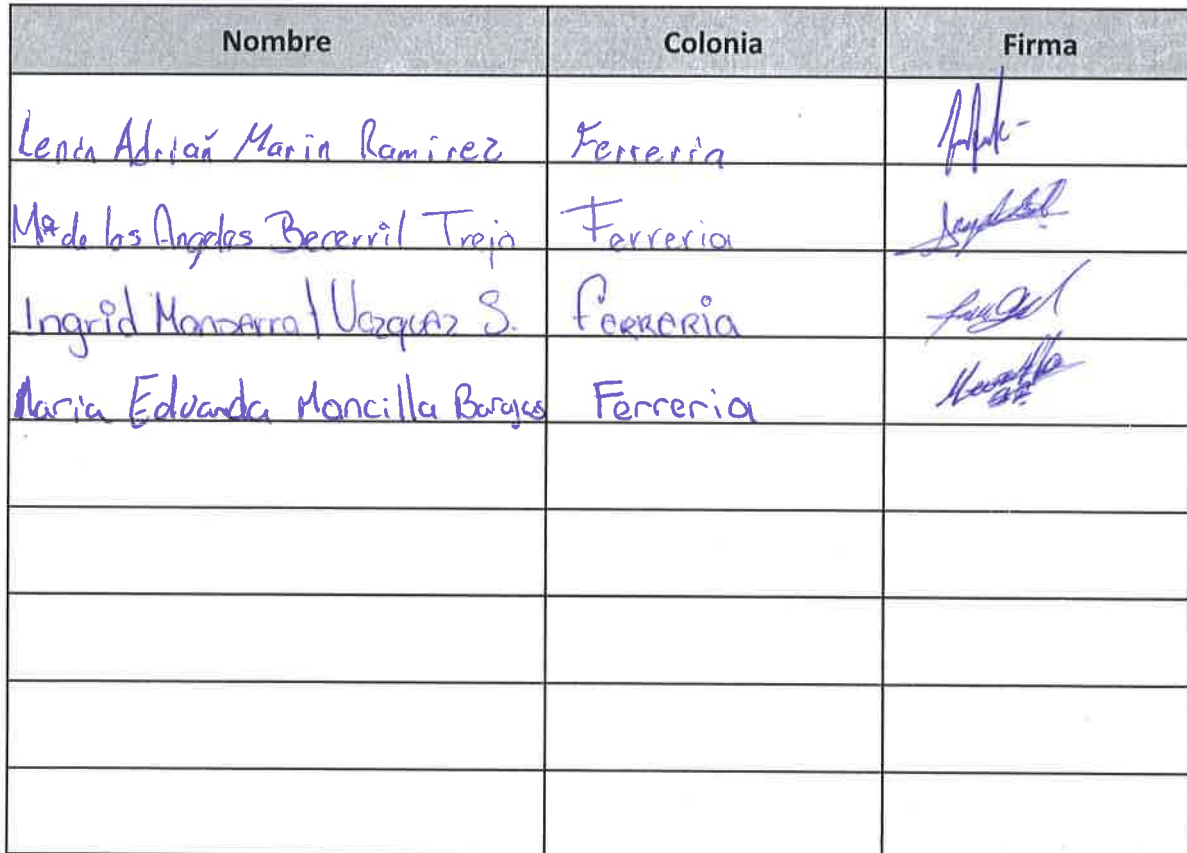 Nombre Colonia Firma
Lenin Adrian Marin Ramirez Ferreria
Mª de los Angeles Becerril Trejo Ferreria
Ingrid Monserrat Vazquez S. Ferreria
Maria Eduarda Mancilla Barajas Ferreria